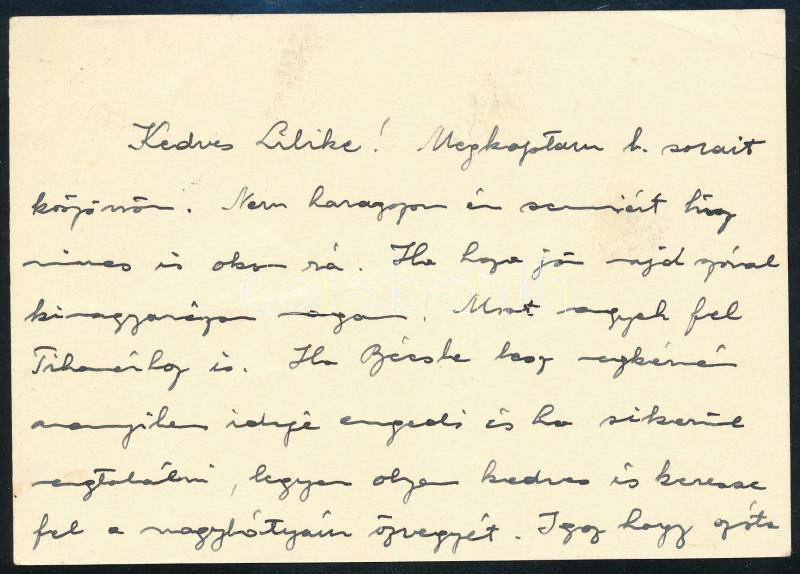 Kedves Lilike! Megkaptam b. sorait
köszönöm. Nem haragszom én semmiért hisz
nincs is okom rá. Ha haza jön majd szóval
kimagyarázom magam. Most megyek fel
Tihamérhoz is. Ha Bécsbe lesz megkérném
amennyiben ideje engedi és ha sikerül
megtalálni, legyen olyan kedves és keresse
fel a nagybátyám özvegyét. Igaz hogy azóta
darabanth